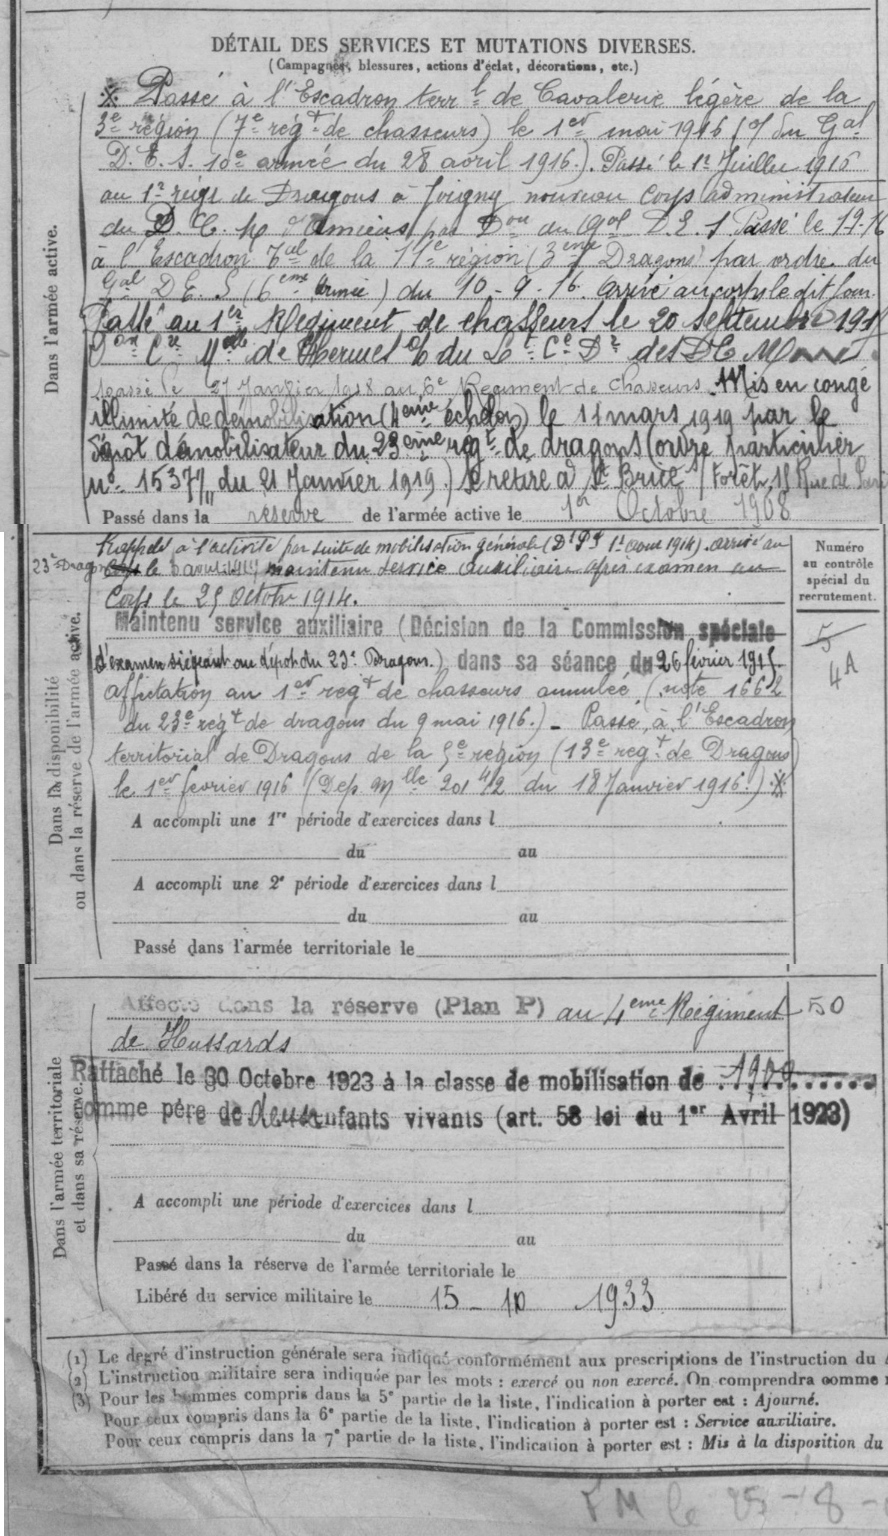 DÉTAIL DES SERVICES ET MUTATIONS DIVERSES.
(Campagnes, blessures, actions d'éclat, décorations, etc.)
Dans l'armée active.
※ Passé à l'Escadron terr l de Cavalerie légère de la
3e région (7e régt de chasseurs) le 1er mai 1916 (of du Gal
D. E. S. 10e armée du 28 avril 1916.). Passé le 1r Juillet 1916
au 1r régt de Dragons à Joigny nouveau corps administrateur
du D. C. M d'Amiens par Don du Gal D. E. S Passé le 17-9-16
à l'Escadron Tal de la 11e région (3eme Dragons) par ordre du
Gal D E. S (6eme Armée) du 10-9-16. Arrivé au corps le dit jour.
Passé au 1er Régiment de chasseurs le 20 septembre 1917
du Lt Ce Dr des D C M
Passé le 27 Janvier 1918 au 6e Régiment de Chasseurs. Mis en congé
illimité de démobilisation (4eme échelon) le 11 mars 1919 par le
Dépôt démobilisateur du 23eme régt de dragons (ordre particulier
no 15377 du 21 Janvier 1919.) Se retire à St Brice s/ Forêt, 18 Rue de Paris
Passé dans la réserve de l'armée active le 1er Octobre 1908
Dans la disponibilité
ou dans la réserve de l'armée active.
Rappelé à l'activité par suite de mobilisation générale (Dt Pt 1r Aout 1914). Arrivé au
23e Dragons le 6 aout 1914 maintenu service auxiliaire après examen au
Corps le 25 Octobre 1914.
Maintenu service auxiliaire (Décision de la Commission spéciale
d'examen siégeant au dépôt du 23e Dragons.) dans sa séance du 26 février 1915.
Affectation au 1er régt de chasseurs annulée (note 1662
du 23e régt de dragons du 9 mai 1916.) - Passé à l'Escadron
territorial de Dragons de la 5e région (13e régt de Dragons)
le 1er février 1916 (Dép. Mlle 201 4/2 du 18 Janvier 1916.) ※
Numéro
au contrôle
spécial du
recrutement.
5
4A
A accompli une 1re période d'exercices dans l
du au
A accompli une 2e période d'exercices dans l
du au
Passé dans l'armée territoriale le
Dans l'armée territoriale
et dans sa réserve.
Affecté dans la réserve (Plan P) au 4eme Régiment 50
de Hussards
Rattaché le 30 Octobre 1923 à la classe de mobilisation de 1900
comme père de deux enfants vivants (art. 58 loi du 1er Avril 1923)
A accompli une période d'exercices dans l
du au
Passé dans la réserve de l'armée territoriale le
Libéré du service militaire le 15 - 10 1933
(1) Le degré d'instruction générale sera indiqué conformément aux prescriptions de l'instruction du
(2) L'instruction militaire sera indiquée par les mots : exercé ou non exercé. On comprendra comme
(3) Pour les hommes compris dans la 5e partie de la liste, l'indication à porter est : Ajourné.
Pour ceux compris dans la 6e partie de la liste, l'indication à porter est : Service auxiliaire.
Pour ceux compris dans la 7e partie de la liste, l'indication à porter est : Mis à la disposition du
FM le 25-8-